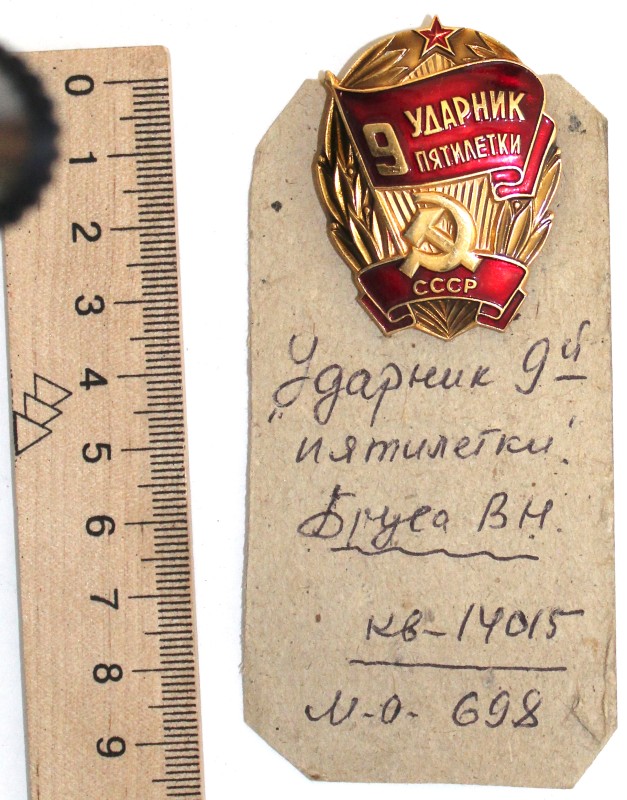 0
1
2
3
4
5
6
7
8
9
9 УДАРНИК
ПЯТИЛЕТКИ
СССР
Ударник 9й
"пятилетки".
Бруса В.Н.
кв-14015
м.о. 698